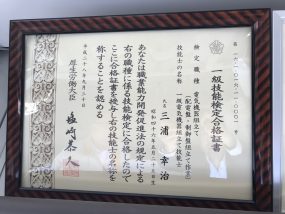 一級技能検定合格証書
検定職種 電気機器組立て
(配電盤・制御盤組立て作業)
技能士の名称 一級電気機器組立て技能士
氏名 三浦幸治
あなたは職業能力開発促進法の規定による
右の職種に係る技能検定に合格したので
ここに合格証書を授与し右の技能士の名称を
称することを認める
厚生労働大臣